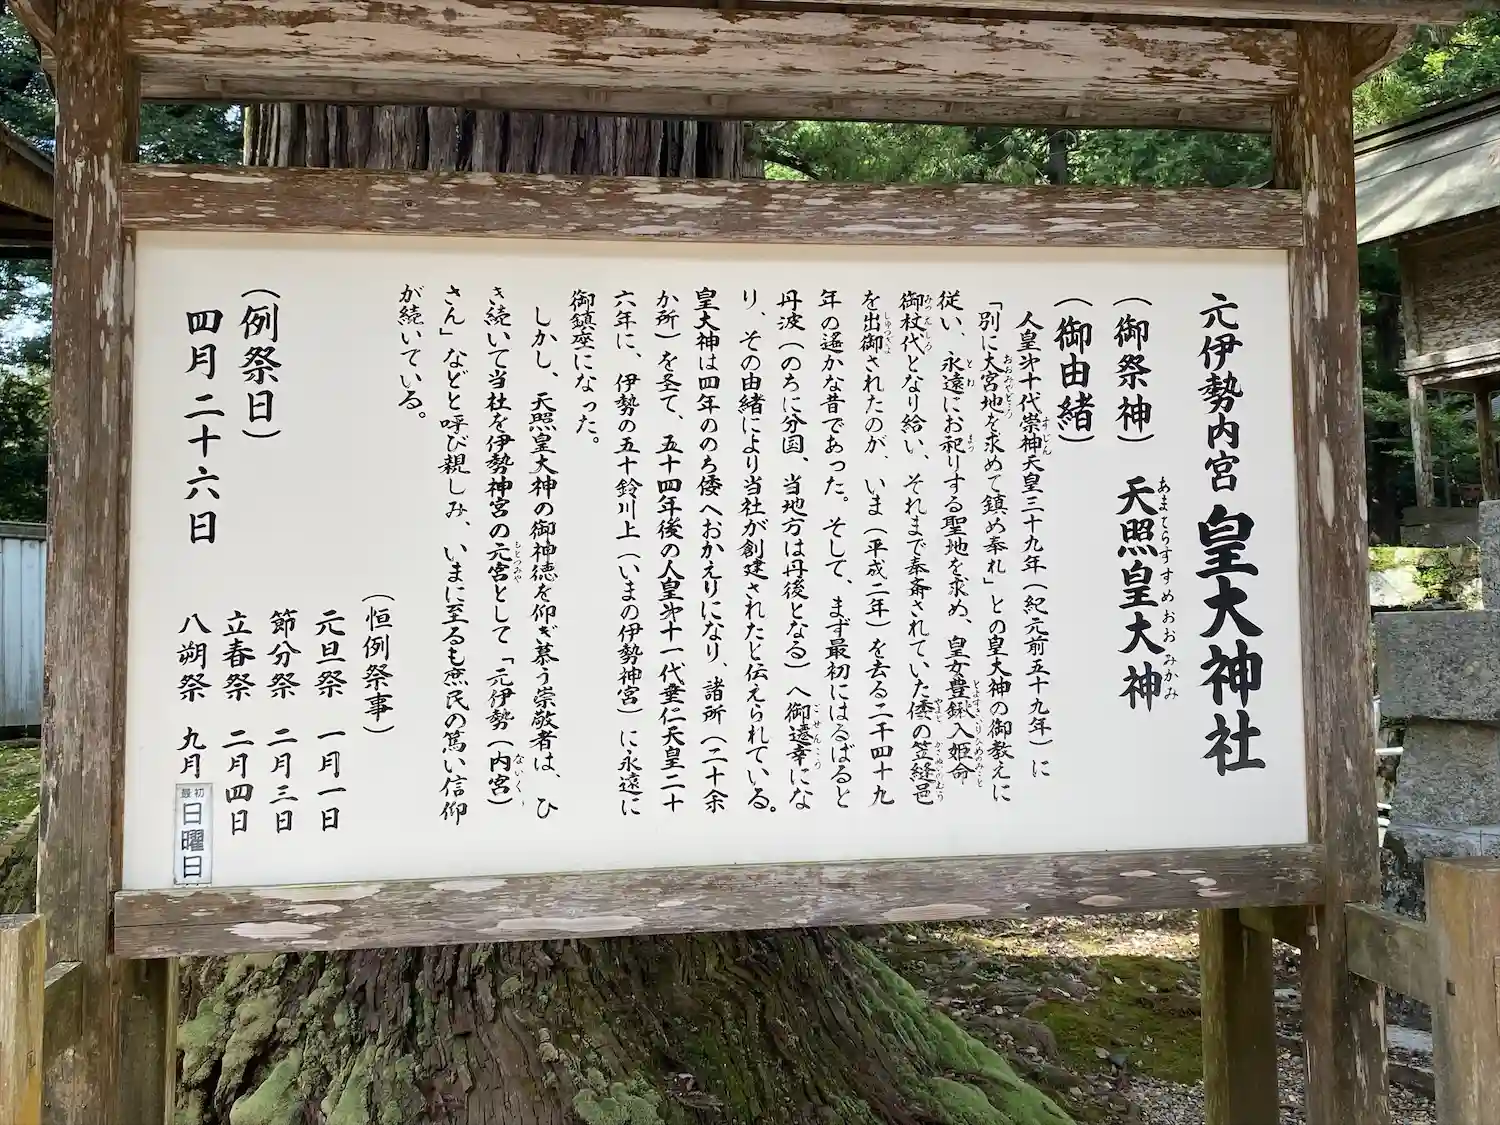 元伊勢内宮 皇大神社
(御祭神) 天照皇大神
あまてらすすめおおみかみ
(御由緒)
人皇第十代崇神天皇三十九年(紀元前五十九年)に
すじん
「別に大宮地を求めて鎮め奉れ」との皇大神の御教えに
おおみやどころ
従い、永遠にお祀りする聖地を求め、皇女豊鍬入姫命
とわ まつ とよすきいりひめのみこと
御杖代となり給い、それまで奉斎されていた倭の笠縫邑
みつえしろ やまと かさぬいのむら
を出御されたのが、いま(平成二年)を去る二千四十九
しゅつぎょ
年の遥かな昔であった。そして、まず最初にはるばると
丹波(のちに分国、当地方は丹後となる)へ御遷幸にな
ごせんこう
り、その由緒により当社が創建されたと伝えられている。
皇大神は四年ののち倭へおかえりになり、諸所(二十余
か所)を圣て、五十四年後の人皇第十一代垂仁天皇二十
六年に、伊勢の五十鈴川上(いまの伊勢神宮)に永遠に
御鎮座になった。
しかし、天照皇大神の御神徳を仰ぎ慕う崇敬者は、ひ
き続いて当社を伊勢神宮の元宮として「元伊勢(内宮)
もとつみや ないく
さん」などと呼び親しみ、いまに至るも庶民の篤い信仰
が続いている。
(恒例祭事)
元旦祭 一月一日
節分祭 二月三日
立春祭 二月四日
八朔祭 九月 最初日曜日
(例祭日)
四月二十六日